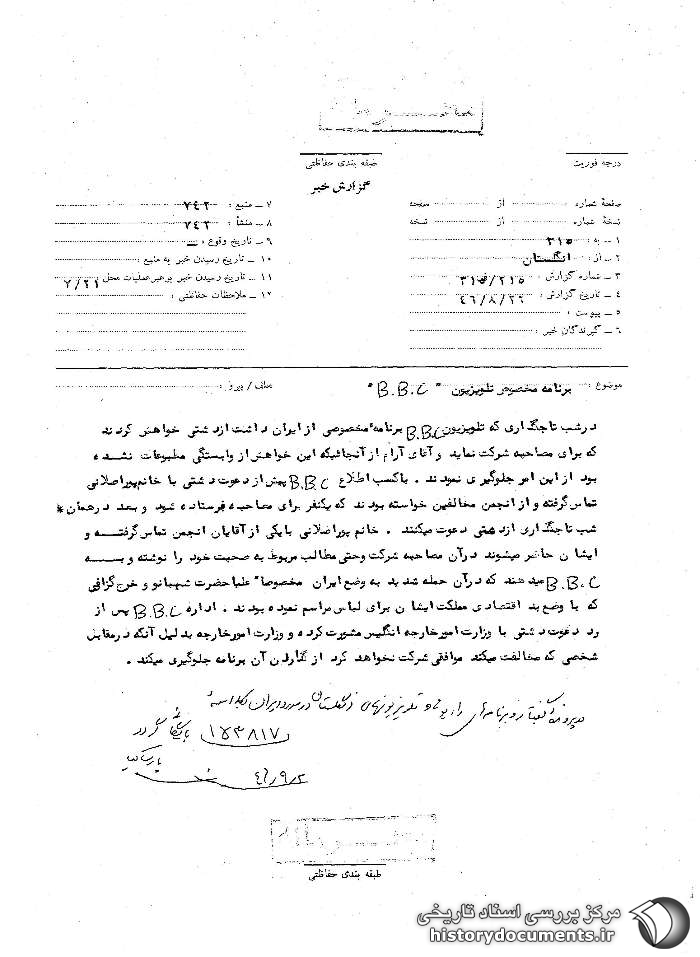 درجه فوریت
طبقه بندی حفاظتی
گزارش خبر
صفحه شماره از صفحه
نسخه شماره از نسخه
۱ ـ به : ۳۱۵
۲ ـ از : انگلستان
۳ ـ شماره گزارش
۴ ـ تاریخ گزارش : ۴۶/۸/۲۹
۵ ـ پیوست :
۶ ـ گیرندگان خبر :
۷ ـ منبع : ۷۴۲
۸ ـ منشأ : ۷۴۲
۹ ـ تاریخ وقوع :
۱۰ ـ تاریخ رسیدن خبر به منبع :
۱۱ ـ تاریخ رسیدن خبر برهبر عملیات محل ۷/۲۱
۱۲ ـ ملاحظات حفاظتی :
موضوع : برنامه مخصوص تلویزیون "B.B.C"
درشب تاجگذاری که تلویزیون B.B.C برنامه مخصوصی از ایران داشت ازدشتی خواهش کردند
که برای مصاحبه شرکت نماید و آقای آرام از آنجائیکه این خواهش از وابستگی مطبوعات نشده
بود از این امر جلوگیری نمودند . باکسب اطلاع B.B.C پیش از دعوت دشتی با خانم پوراصلانی
تماس گرفته و از انجمن مخالفین خواسته بودند که یکنفر برای مصاحبه فرستاده شود و بعد درهمان
شب تاجگذاری ازدشتی دعوت میکنند . خانم پوراصلانی بایکی از آقایان انجمن تماس گرفتـه و
ایشان حاضر میشوند درآن مصاحبه شرکت وحتی مطالب مربوط به صحبت خود را نوشته و بـه
B.B.C میدهند که درآن حمله شدید به وضع ایران مخصوصا" علیاحضرت شهبانو و خرج گزافی
که با وضع بد اقتصادی مملکت ایشان برای لباس مراسم نموده بودند . اداره B.B.C پس از
رد دعوت دشتی با وزارت امورخارجه انگلیس مشورت کرده و وزارت امورخارجه بدلیل آنکه درمقابل
شخصی که مخالفت میکند موافقی شرکت نخواهد کرد از گذاردن آن برنامه جلوگیری میکند .
۱۵۳۸۱۷
۴۶/۹/۲
طبقه بندی حفاظتی
مرکز بررسی اسناد تاریخی
historydocuments.ir